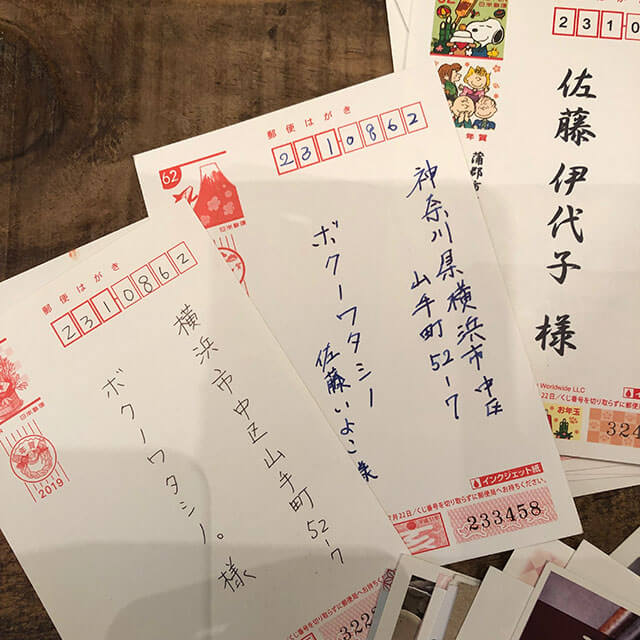 郵便はがき
2310862
横浜市中区山手町52-7
ボクノワタシノ。様
2019
322
62
日本郵便
郵便はがき
2310862
神奈川県横浜市中区
山手町52-7
ボクーワタシノ
佐藤いよこ様
インクジェット紙
月22日/くじ番号を切り取らずに郵便局へお持ちください。
233458
62
日本郵便
年賀
2310
佐藤伊代子様
蒲郡市
Worldwide LLC
22日/くじ番号を切り取らずに郵便
お年玉
324